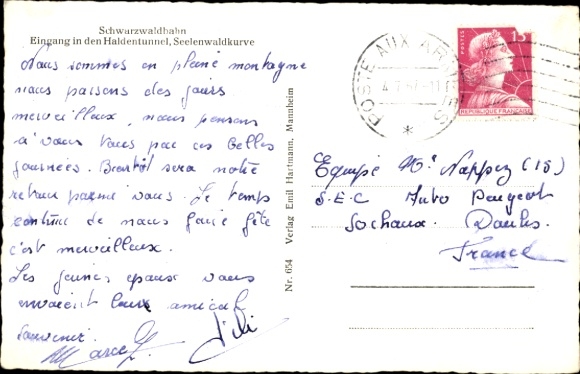 Schwarzwaldbahn
Eingang in den Haldentunnel, Seelenwaldkurve
Nous sommes en pleine montagne
nous passons des jours
merveilleux, nous pensons
a vous tous par ces belles
journées. Bientôt sera notre
retour parmi vous. Le temps
continue de nous faire fête
c'est merveilleux.
Les jeunes epoux vous
envoient leur amical
souvenir.
Marcel
Nr. 654 Verlag Emil Hartmann, Mannheim
POSTE AUX ARMEES
POSTES
15F
REPUBLIQUE FRANÇAISE
Equipe Mr Nappez (IS)
S.E.C Auto Peugeot
Sochaux. Doubs.
France